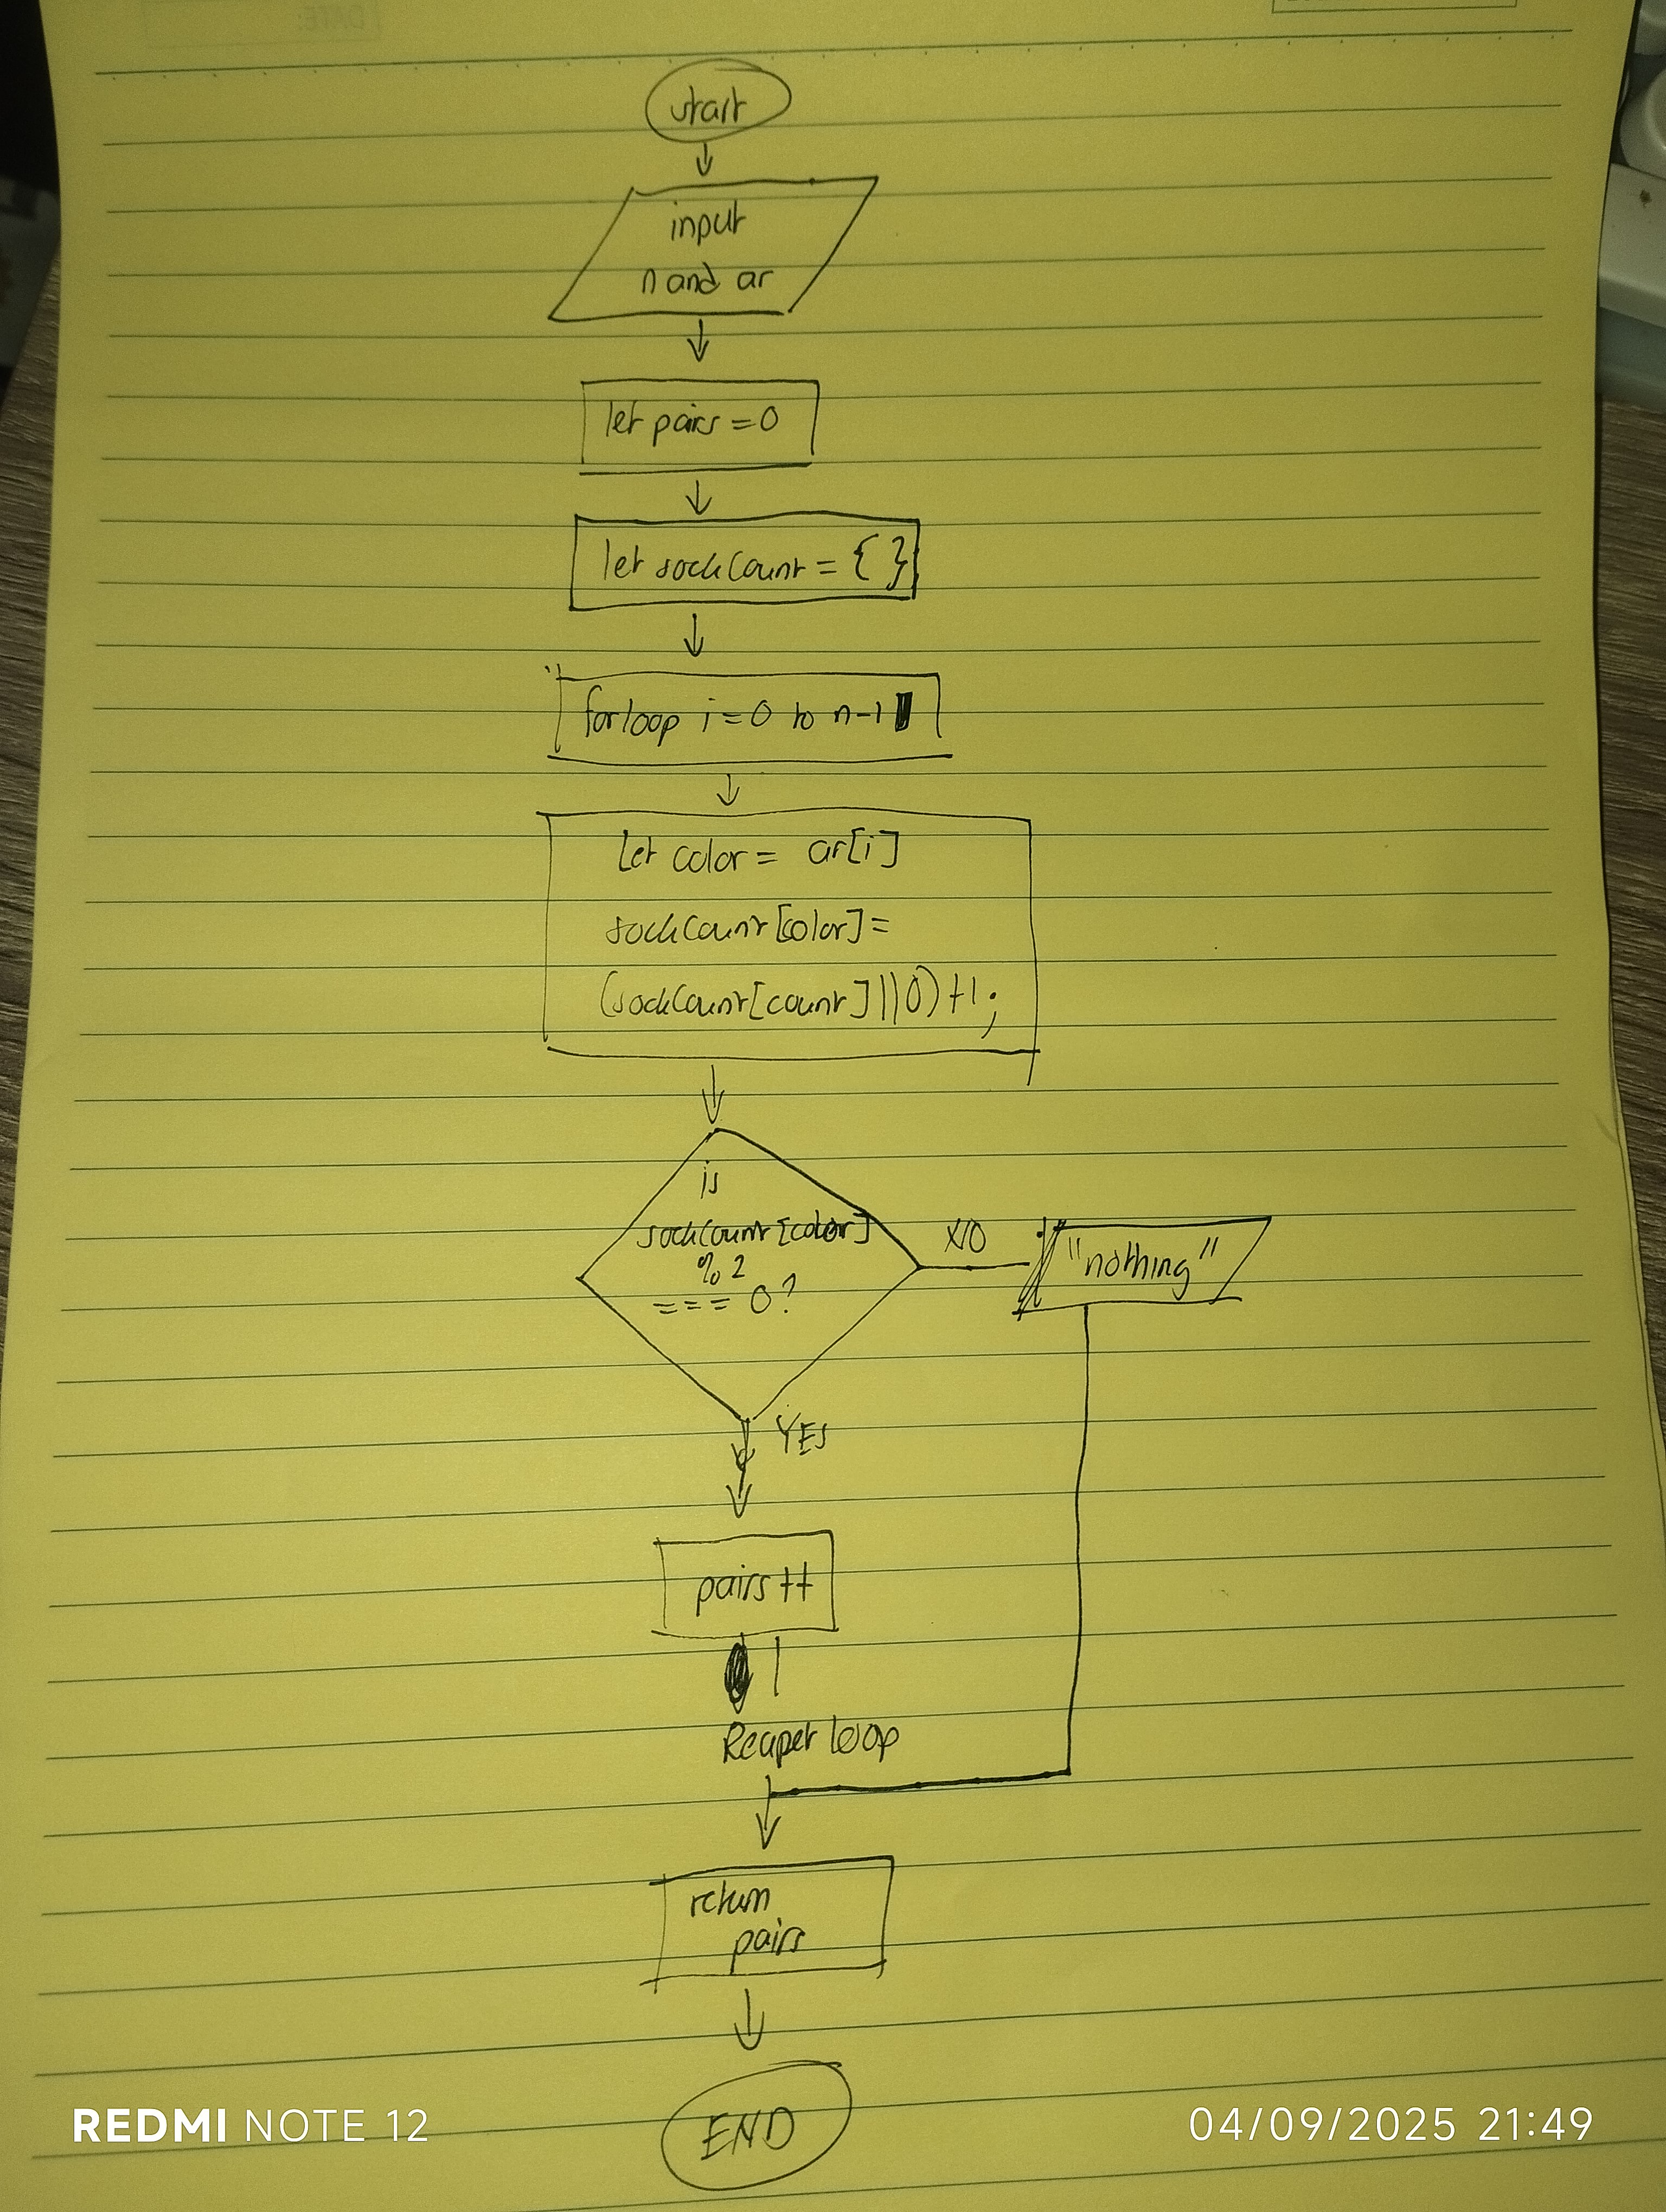 DATE:
start
input
n and ar
let pairs = 0
let sockCount = { }
for loop i = 0 to n-1
let color = ar[i]
sockCount[color] =
(sockCount[count] || 0) +1;
is
sockCount[color]
% 2
=== 0?
NO
"nothing"
YES
pairs ++
Reapet loop
return
pairs
END
REDMI NOTE 12
04/09/2025 21:49